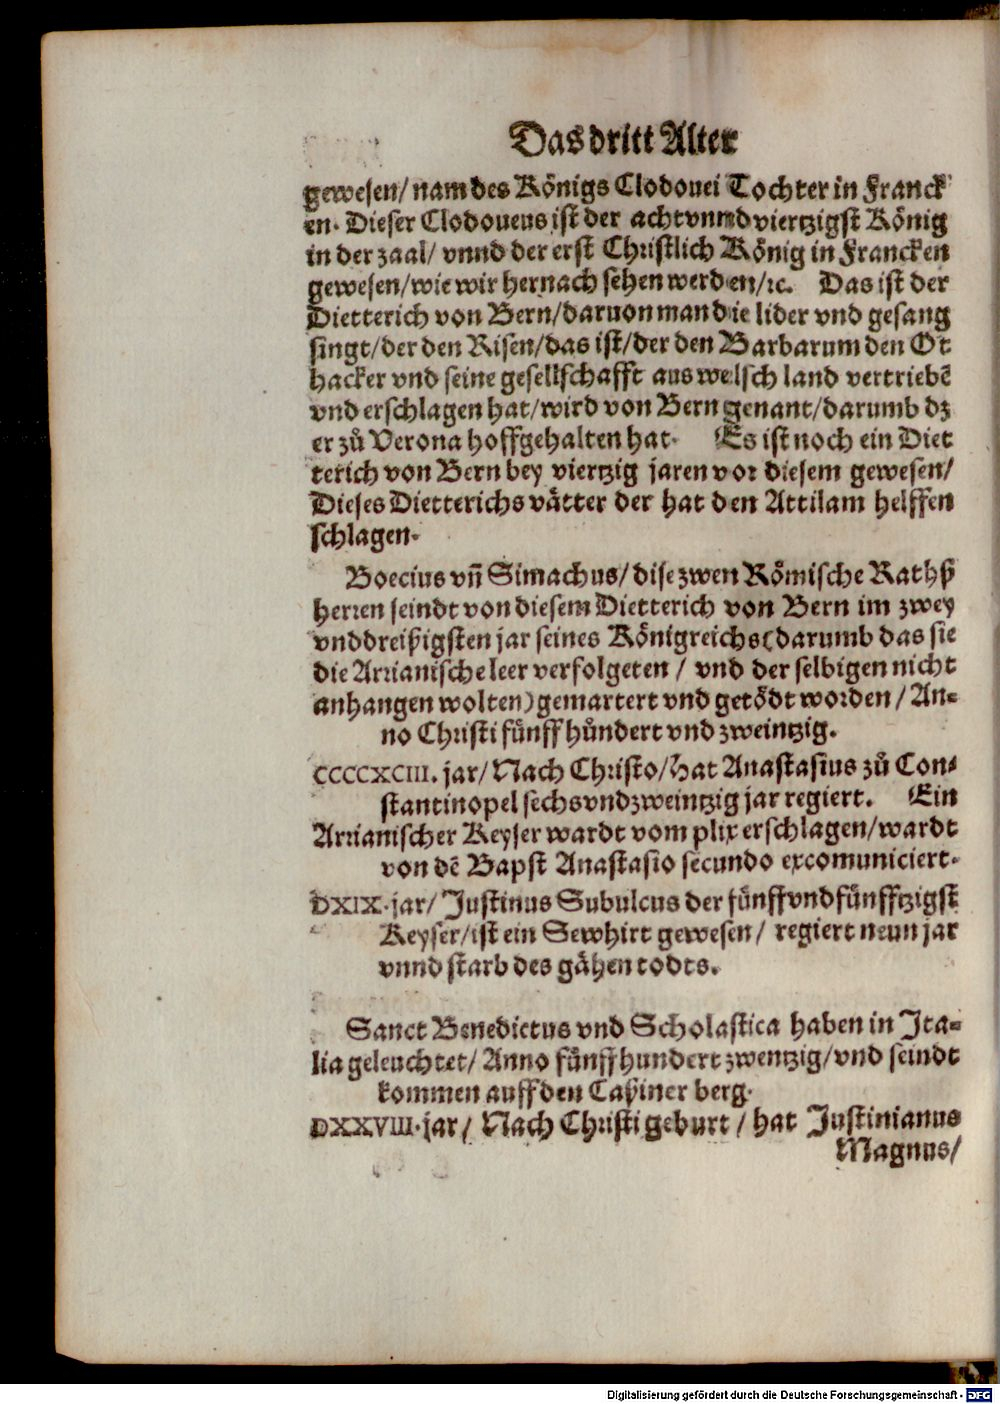 Das dritt Alter
gewesen/ nam des Königs Clodouei Tochter in Franck
en. Dieser Clodoueus ist der achtvnnd viertzigst König
in der zaal/ vnnd der erst Christlich König in Francken
gewesen/ wie wir hernach sehen werden/ ꝛc. Das ist der
Dietterich von Bern/ daruon man die lider vnd gesang
singt/ der den Risen/ das ist/ der den Barbarum den Ot
hacker vnd seine gesellschafft aus welsch land vertriebē
vnd erschlagen hat/ wird von Bern genant/ darumb dz
er zů Verona hoffgehalten hat. Es ist noch ein Diet
terich von Bern bey viertzig jaren vor diesem gewesen/
Dieses Dietterichs vätter der hat den Attilam helffen
schlagen.
Boecius vñ Simachus/ dise zwen Römische Rathß
herren seindt von diesem Dietterich von Bern im zwey
vnddreißigsten jar seines Königreichs (darumb das sie
die Arrianische leer verfolgeten / vnd der selbigen nicht
anhangen wolten) gemartert vnd getödt worden / An=
no Christi fünff hůndert vnd zweintzig.
CCCCXCIII. jar/ Nach Christo/ hat Anastasius zů Con=
stantinopel sechs vndzweintzig jar regiert. Ein
Arrianischer Keyser wardt vom plix erschlagen/ wardt
von dē Bapst Anastasio secundo excomuniciert.
DXIX. jar/ Justinus Subulcus der fünffvndfünfftzigst
Keyser/ ist ein Sewhirt gewesen/ regiert neun jar
vnnd starb des gähen todts.
Sanct Benedictus vnd Scholastica haben in Ita=
lia geleuchtet/ Anno fünff hundert zwentzig/ vnd seindt
kommen auff den Caßiner berg.
DXXVIII. jar/ Nach Christi geburt / hat Justinianus
Magnus/
Digitalisierung gefördert durch die Deutsche Forschungsgemeinschaft - DFG